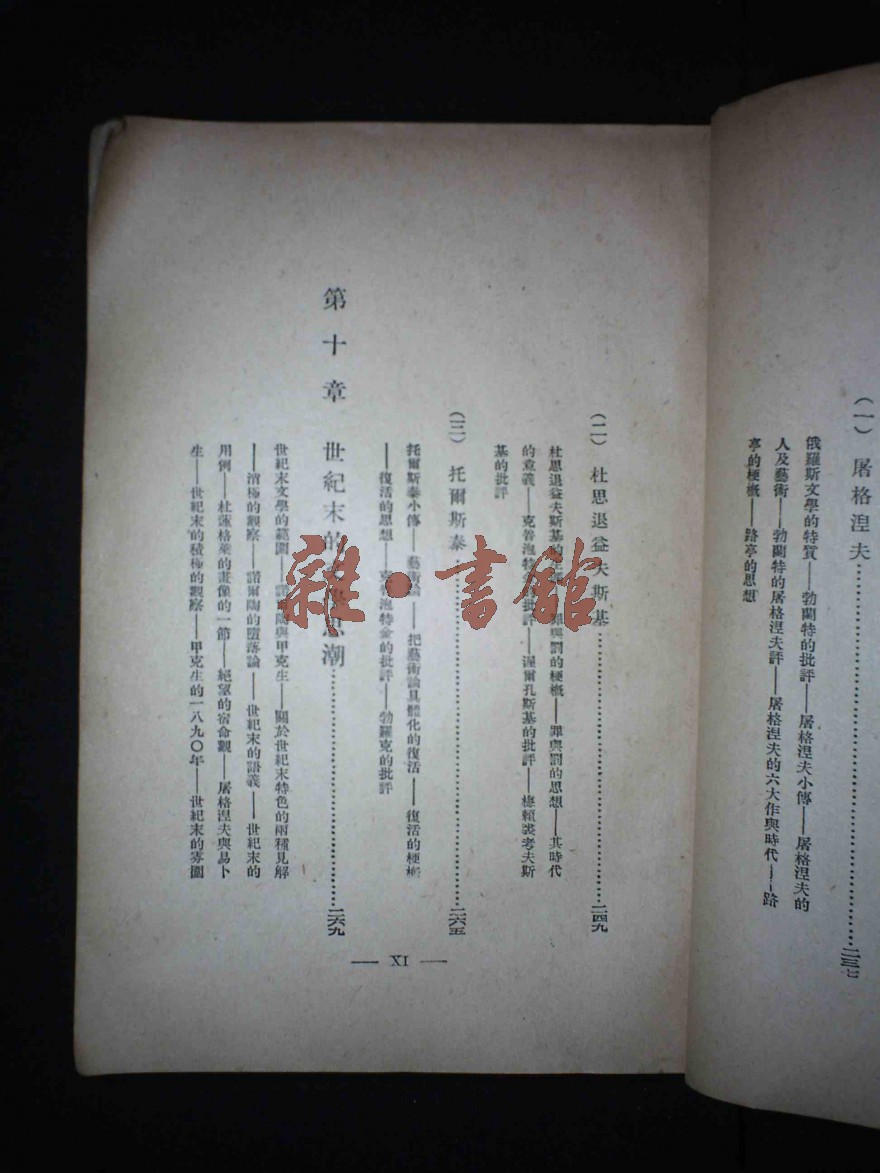 （一）屠格涅夫
俄羅斯文學的特質——勃蘭特的批評——屠格涅夫小傳——屠格涅夫的
人及藝術——勃蘭特的屠格涅夫評——屠格涅夫的六大作與時代——路
亭的梗概——路亭的思想
（二）杜思退益夫斯基……二四九
杜思退益夫斯基的 罪與罰的梗概——罪與罰的思想——其時代
的意義——克普泡特 的批評——渥爾孔斯基的批評——梅賴裘考夫斯
基的批評
（三）托爾斯泰……二六五
托爾斯泰小傳——藝術論——把藝術論具體化的復活——復活的梗概
——復活的思想——克普泡特金的批評——勃羅克的批評
第十章 世紀末的 思潮……二六九
世紀末文學的範圍——諾爾陶與甲克生——關於世紀末特色的兩種見解
——消極的觀察——諾爾陶的墮落論——世紀末的語義——世紀末的
用例——杜蓮格萊的畫像的一節——絕望的宿命觀——屠格涅夫與易卜
生——世紀末的積極的觀察——甲克生的一八九〇年——世紀末的雰圍
— IX —
雜·書館